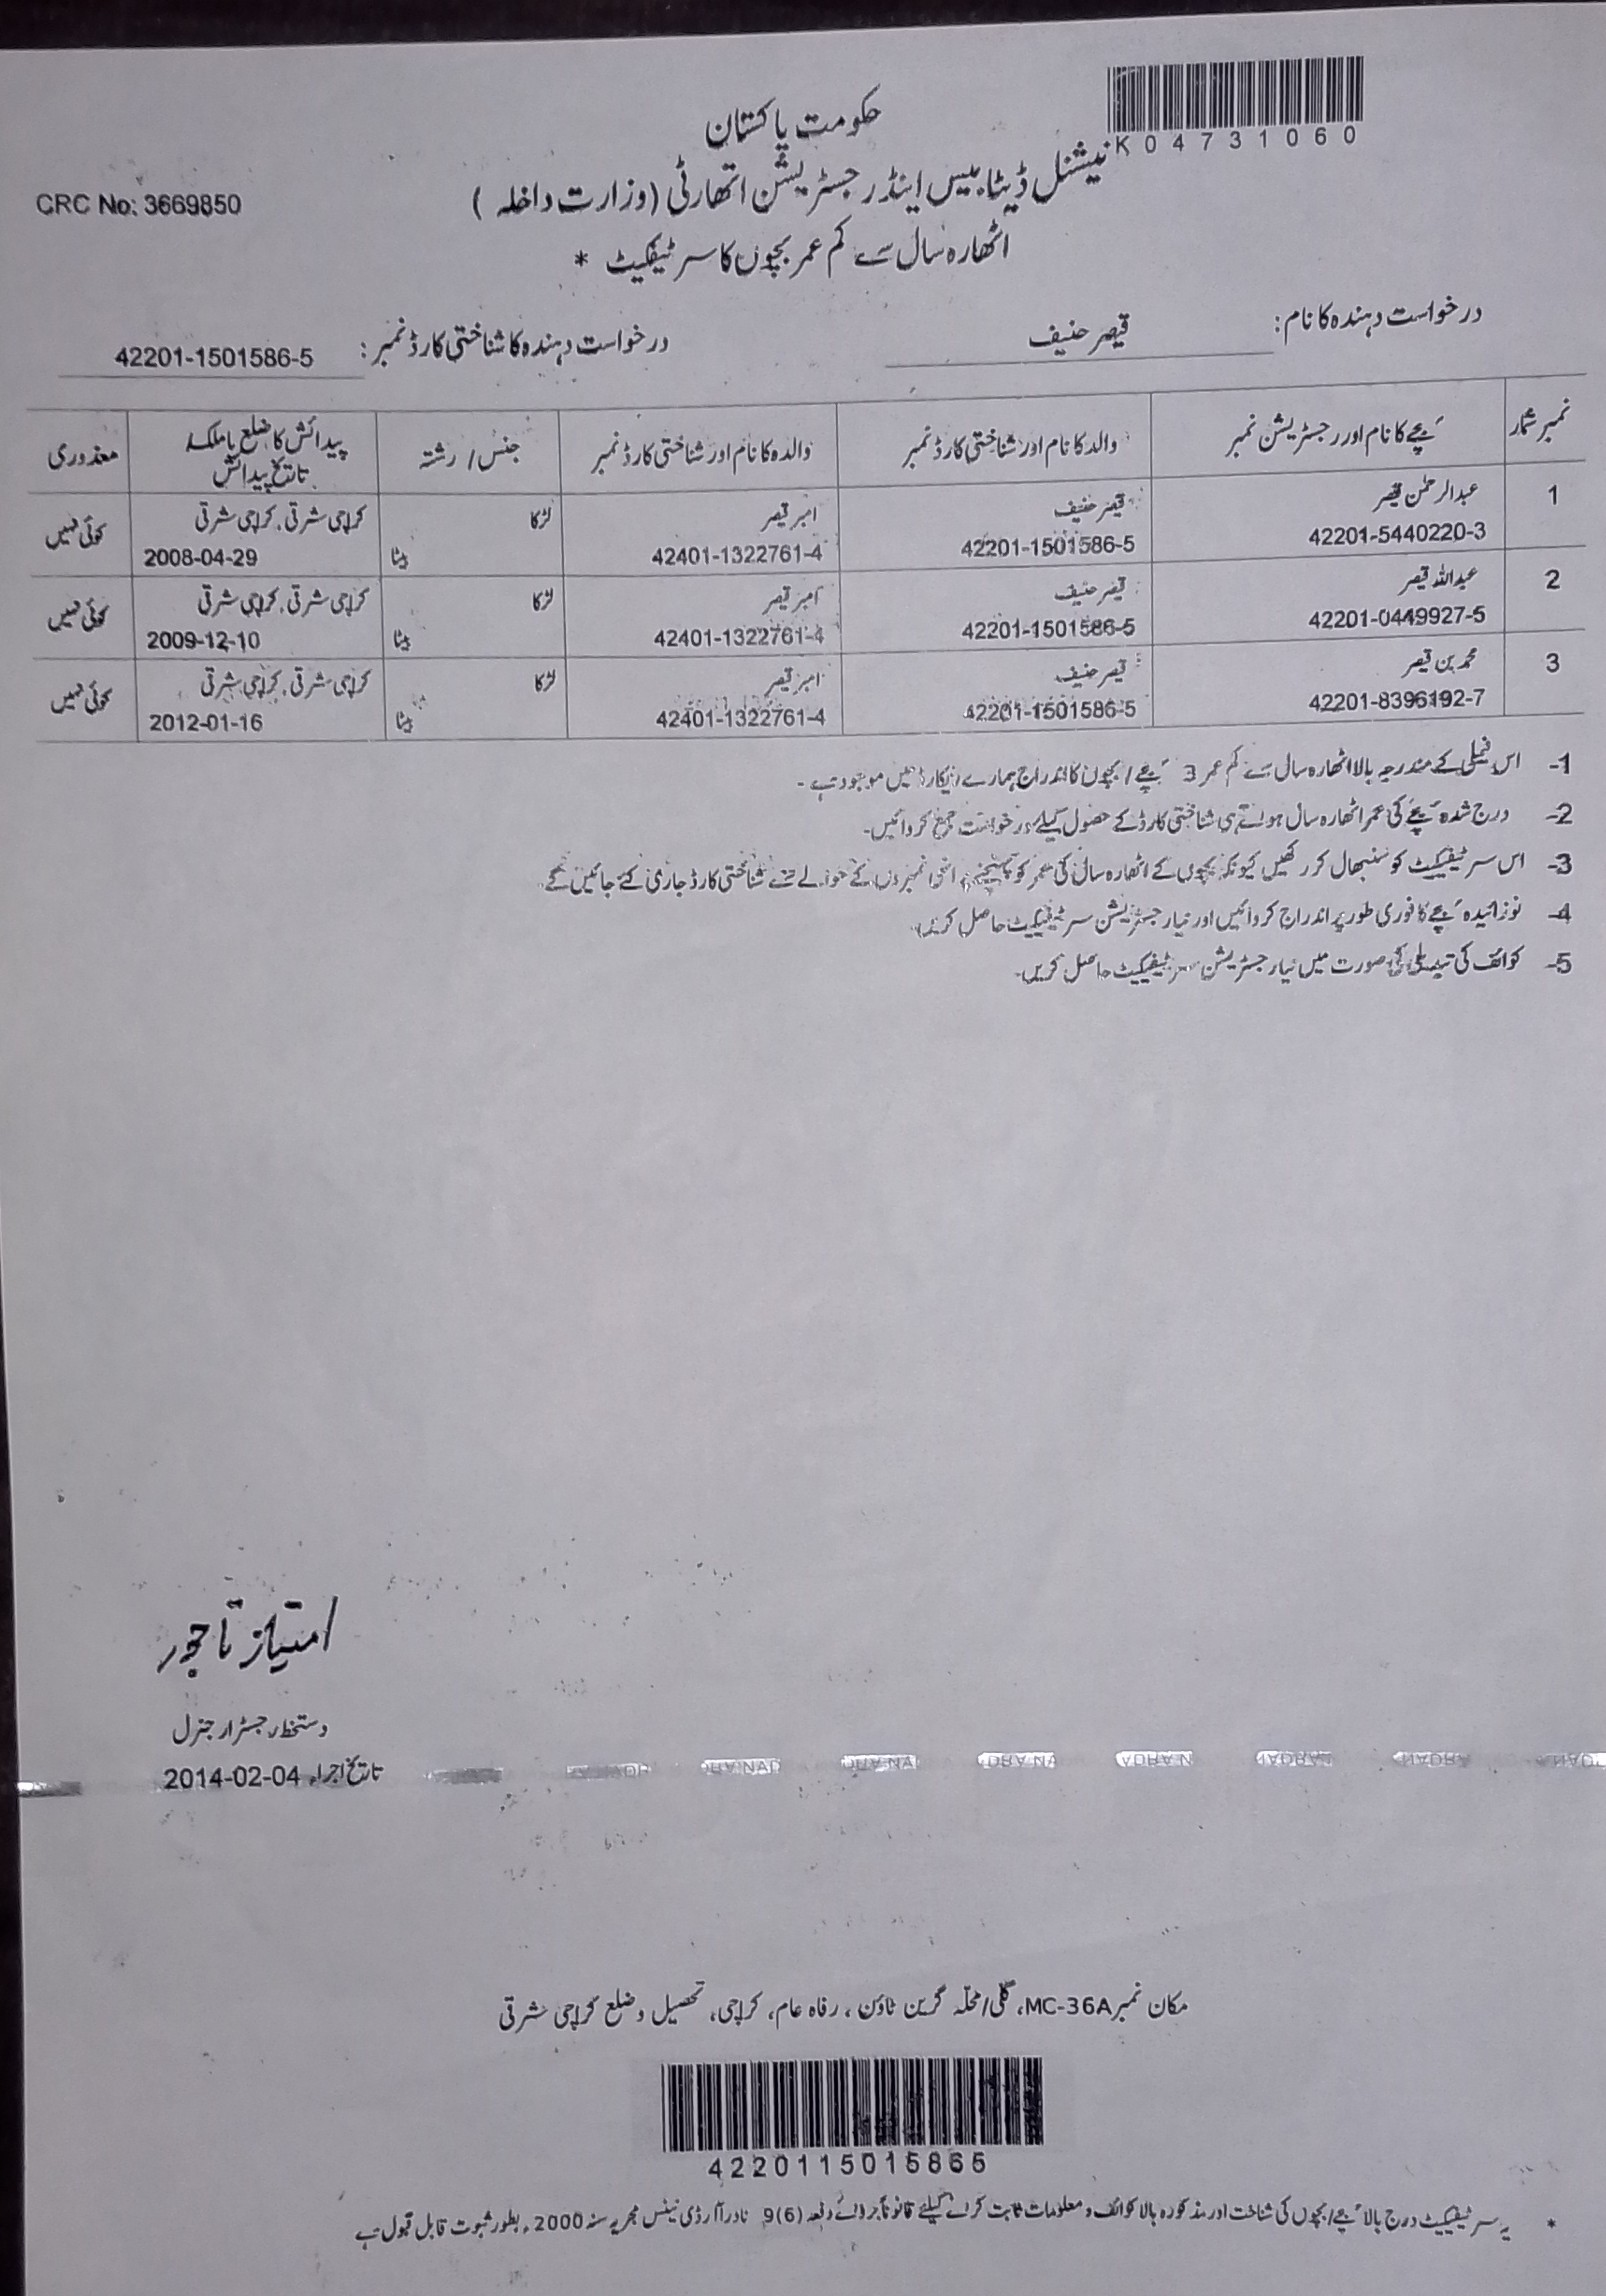 K04731060
حکومت پاکستان
نیشنل ڈیٹا بیس اینڈ رجسٹریشن اتھارٹی (وزارت داخلہ)
CRC No: 3669850
اٹھارہ سال سے کم عمر بچوں کا سرٹیفکیٹ *
درخواست دہندہ کا نام: قیصر حنیف
درخواست دہندہ کا شناختی کارڈ نمبر: 42201-1501586-5
نمبر شمار بچے کا نام اور رجسٹریشن نمبر والد کا نام اور شناختی کارڈ نمبر والدہ کا نام اور شناختی کارڈ نمبر جنس / رشتہ پیدائش کا ضلع یا ملک معذوری
تاریخ پیدائش
1 عبدالرحمٰن قیصر قیصر حنیف امبر قیصر لڑکا کراچی شرقی، کراچی شرقی کوئی نہیں
42201-5440220-3 42201-1501586-5 42401-1322761-4 بیٹا 2008-04-29
2 عبداللہ قیصر قیصر حنیف امبر قیصر لڑکا کراچی شرقی، کراچی شرقی کوئی نہیں
42201-0449927-5 42201-1501586-5 42401-1322761-4 بیٹا 2009-12-10
3 محمد بن قیصر قیصر حنیف امبر قیصر لڑکا کراچی شرقی، کراچی شرقی کوئی نہیں
42201-8396192-7 42201-1501586-5 42401-1322761-4 بیٹا 2012-01-16
1- اس فیملی کے مندرجہ بالا اٹھارہ سال سے کم عمر 3 بچے / بچوں کا اندراج ہمارے ریکارڈ میں موجود ہے۔
2- درج شدہ بچے کی عمر اٹھارہ سال ہوتے ہی شناختی کارڈ کے حصول کیلئے درخواست جمع کروائیں۔
3- اس سرٹیفکیٹ کو سنبھال کر رکھیں کیونکہ بچوں کے اٹھارہ سال کی عمر کو پہنچنے پر انہی نمبروں کے حوالے سے شناختی کارڈ جاری کئے جائیں گے
4- نوزائیدہ بچے کا فوری طور پر اندراج کروائیں اور نیا رجسٹریشن سرٹیفکیٹ حاصل کریں۔
5- کوائف کی تبدیلی کی صورت میں نیا رجسٹریشن سرٹیفکیٹ حاصل کریں۔
امتیاز تاجور
دستخط رجسٹرار جنرل
تاریخ اجراء 2014-02-04
مکان نمبر MC-36A، گلی/محلہ گرین ٹاؤن، رفاہ عام، کراچی، تحصیل و ضلع کراچی شرقی
4220115015865
* یہ سرٹیفکیٹ درج بالا بچے/بچوں کی شناخت اور مذکورہ بالا کوائف و معلومات ثابت کرنے کیلئے قانوناً بروئے دفعہ 9(6) نادرا آرڈی نینس مجریہ سنہ 2000ء بطور ثبوت قابل قبول ہے